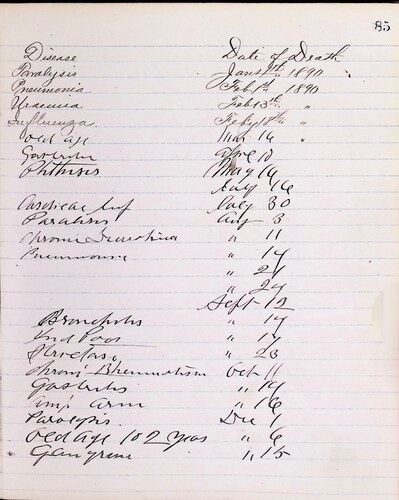 85
Disease Date of Death
Paralysis Jan 1890
Pneumonia Feb 1st 1890
Uraemia Feb 13th "
Influenza Feby 18th "
old age Mar 14 "
Gastritis April 10
Phthisis May 14
July 16
July 30
Paralisis Aug 3
Chronic " 11
Pneumonia " 14
" 21
" 24
Sept 12
Bronchitis " 17
" 17
" 23
Chronic Rheumatism Oct 11
Gastritis " 14
arm " 16
Paralysis Dec 1
Old age 102 years " 6
Gangrene " 15